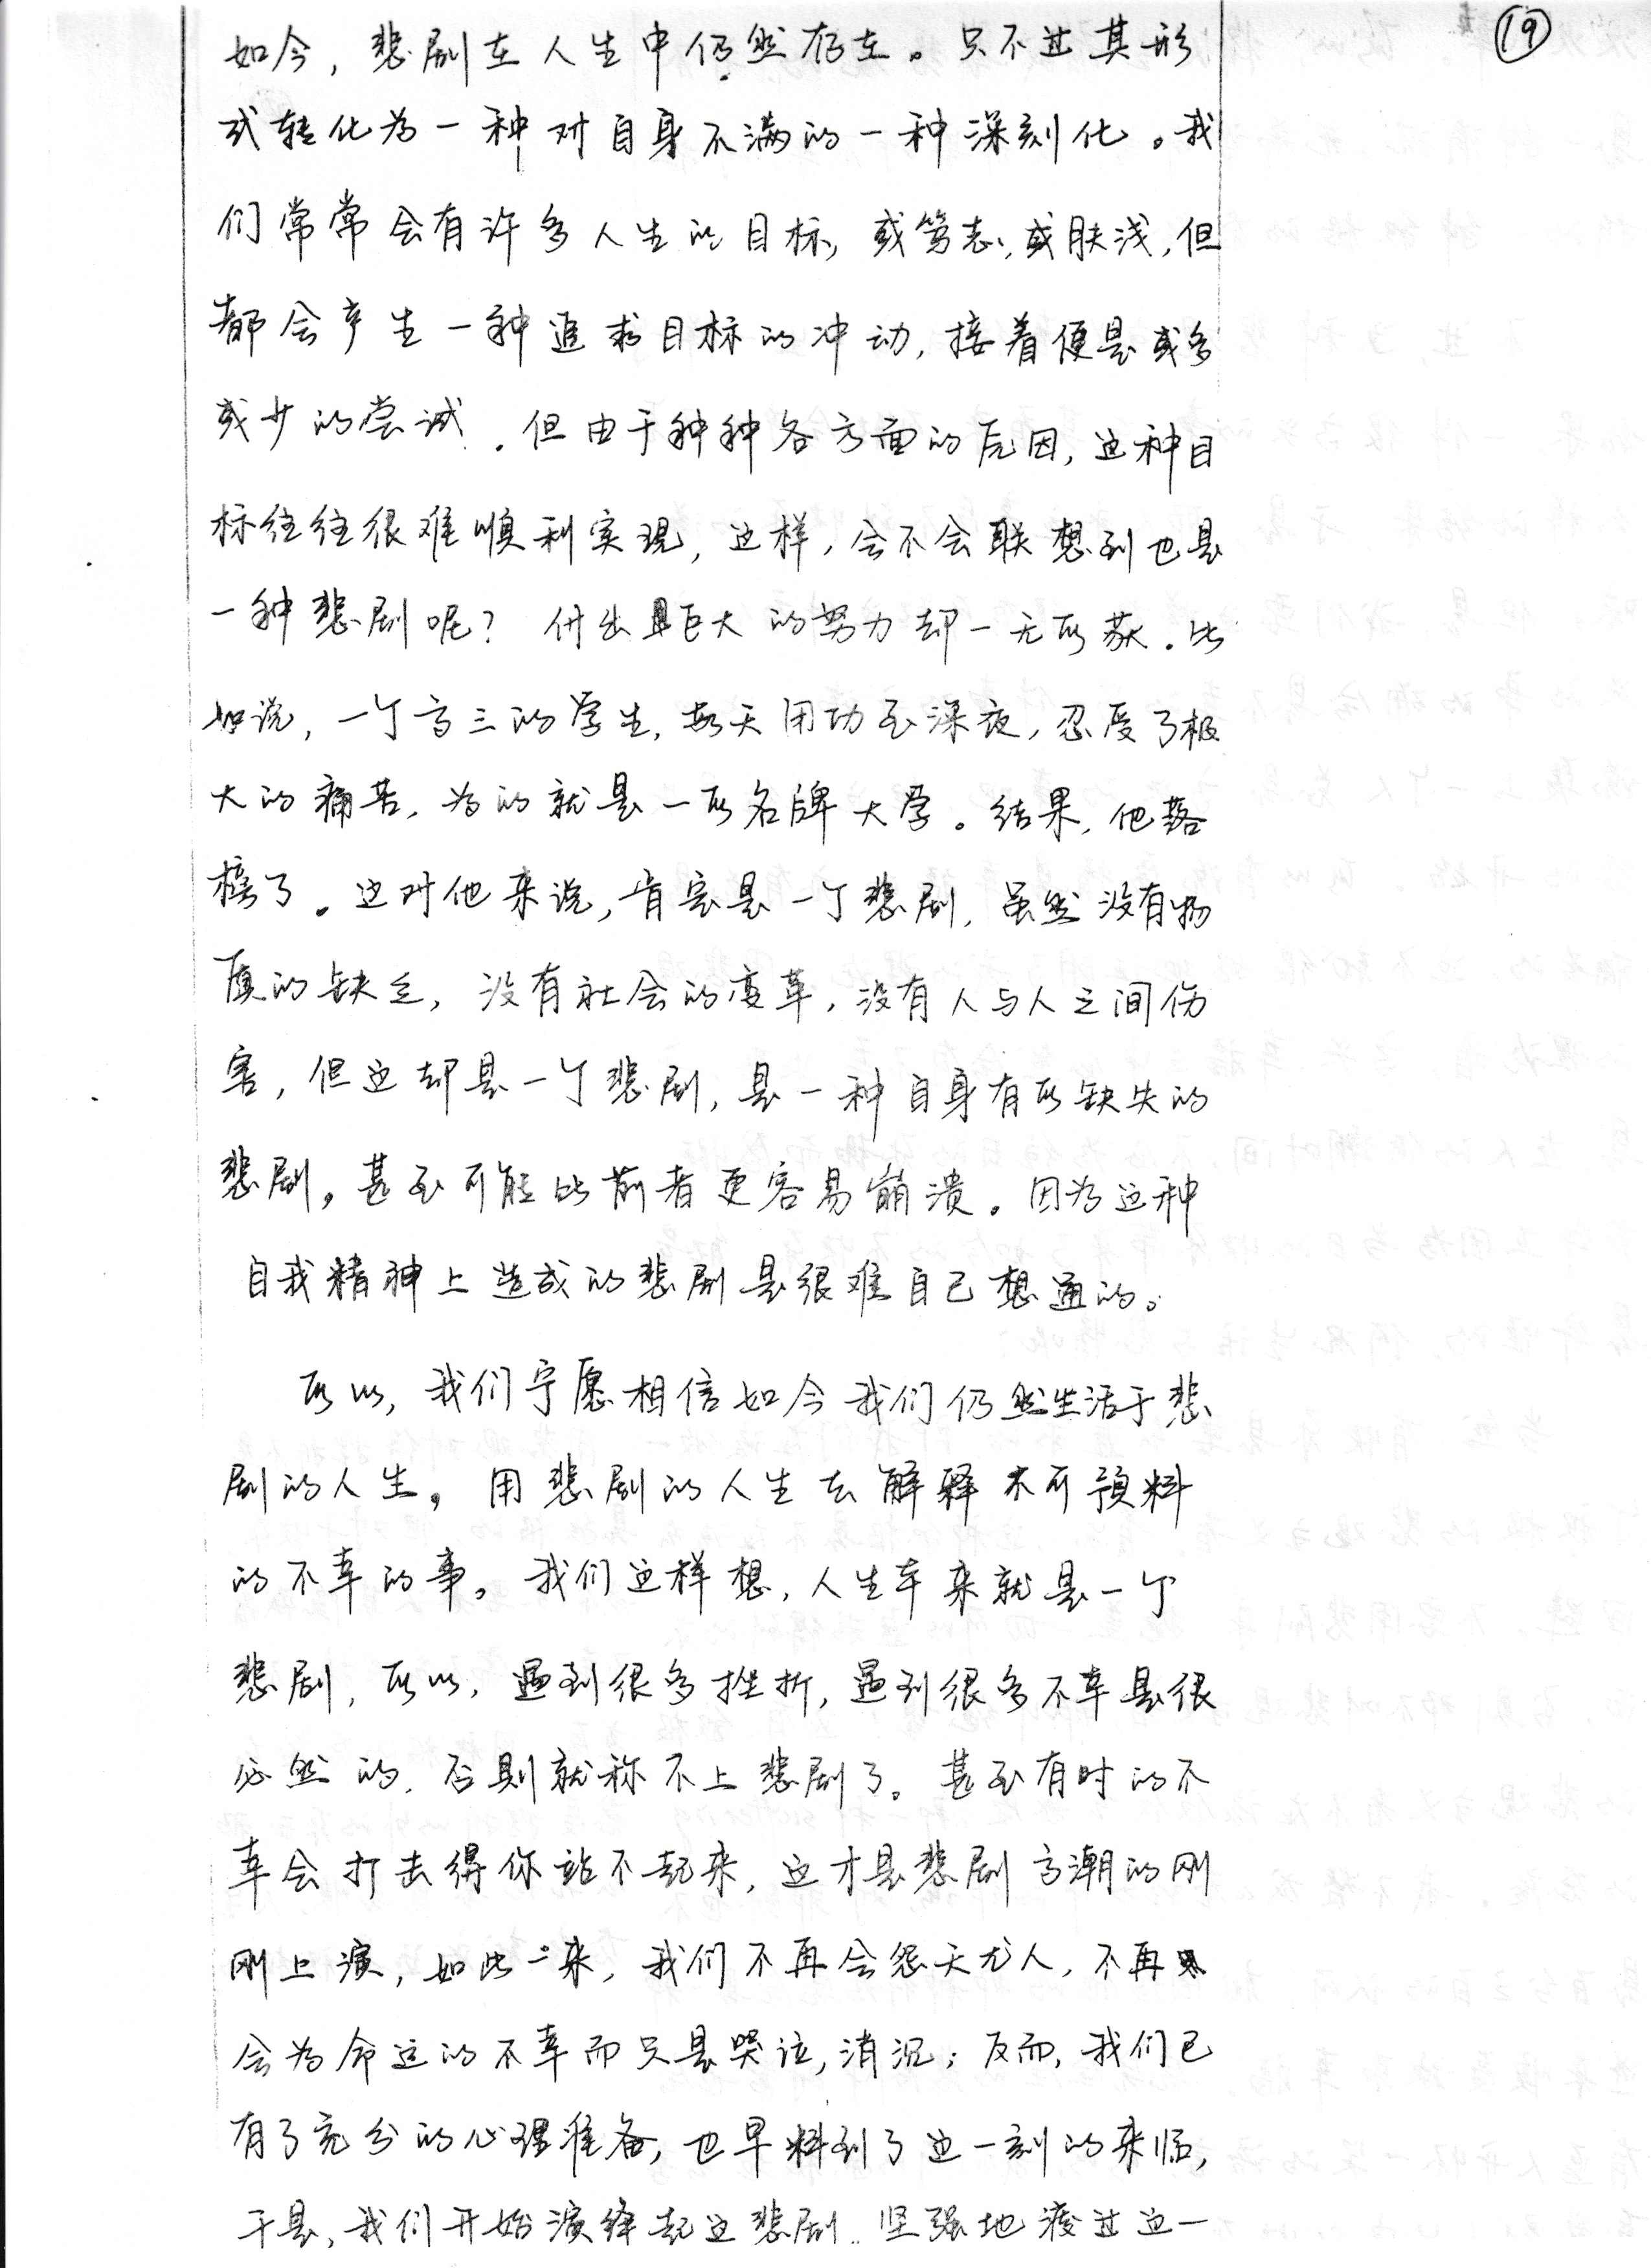 ⑲
如今，悲剧在人生中仍然存在。只不过其形
式转化为一种对自身不满的一种深刻化。我
们常常会有许多人生的目标，或笃志，或肤浅，但
都会产生一种追求目标的冲动，接着便是或多
或少的尝试．但由于种种各方面的原因，这种目
标往往很难顺利实现，这样，会不会联想到也是
一种悲剧呢？付出巨大的努力却一无所获．比
如说，一个高三的学生，每天用功至深夜，忍受了极
大的痛苦，为的就是一所名牌大学。结果，他落
榜了。这对他来说，肯定是一个悲剧，虽然没有物
质的缺乏，没有社会的变革，没有人与人之间伤
害，但这却是一个悲剧，是一种自身有所缺失的
悲剧，甚至可能比前者更容易崩溃。因为这种
自我精神上造成的悲剧是很难自己想通的。
所以，我们宁愿相信如今我们仍然生活于悲
剧的人生，用悲剧的人生去解释不可预料
的不幸的事。我们这样想，人生本来就是一个
悲剧，所以，遇到很多挫折，遇到很多不幸是很
必然的，否则就称不上悲剧了。甚至有时的不
幸会打击得你站不起来，这才是悲剧高潮的刚
刚上演，如此一来，我们不再会怨天尤人，不再
会为命运的不幸而只是哭泣，消沉；反而，我们已
有了充分的心理准备，也早料到了这一刻的来临，
于是，我们开始演绎起这悲剧．坚强地渡过这一